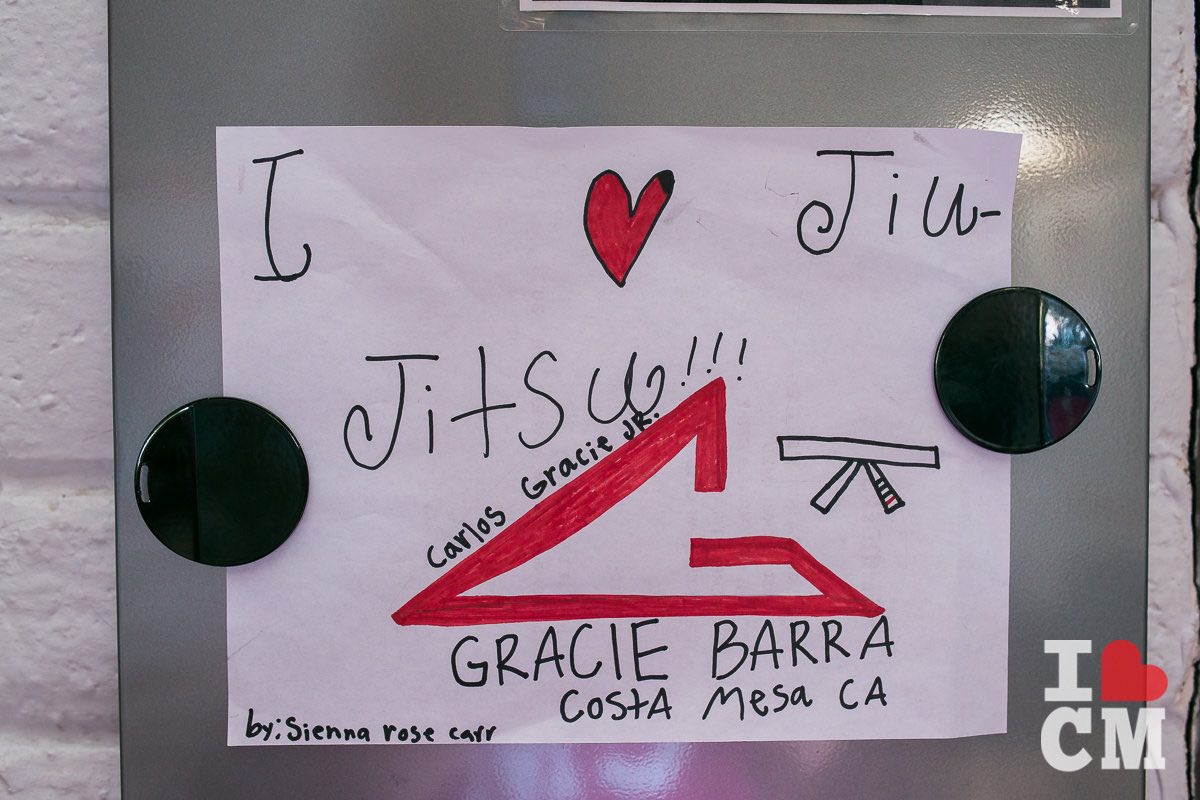 I ❤ Jiu-
Jitsu!!!
Carlos Gracie JR.
GRACIE BARRA
COSTA Mesa CA
by: Sienna rose carr
I ❤
CM